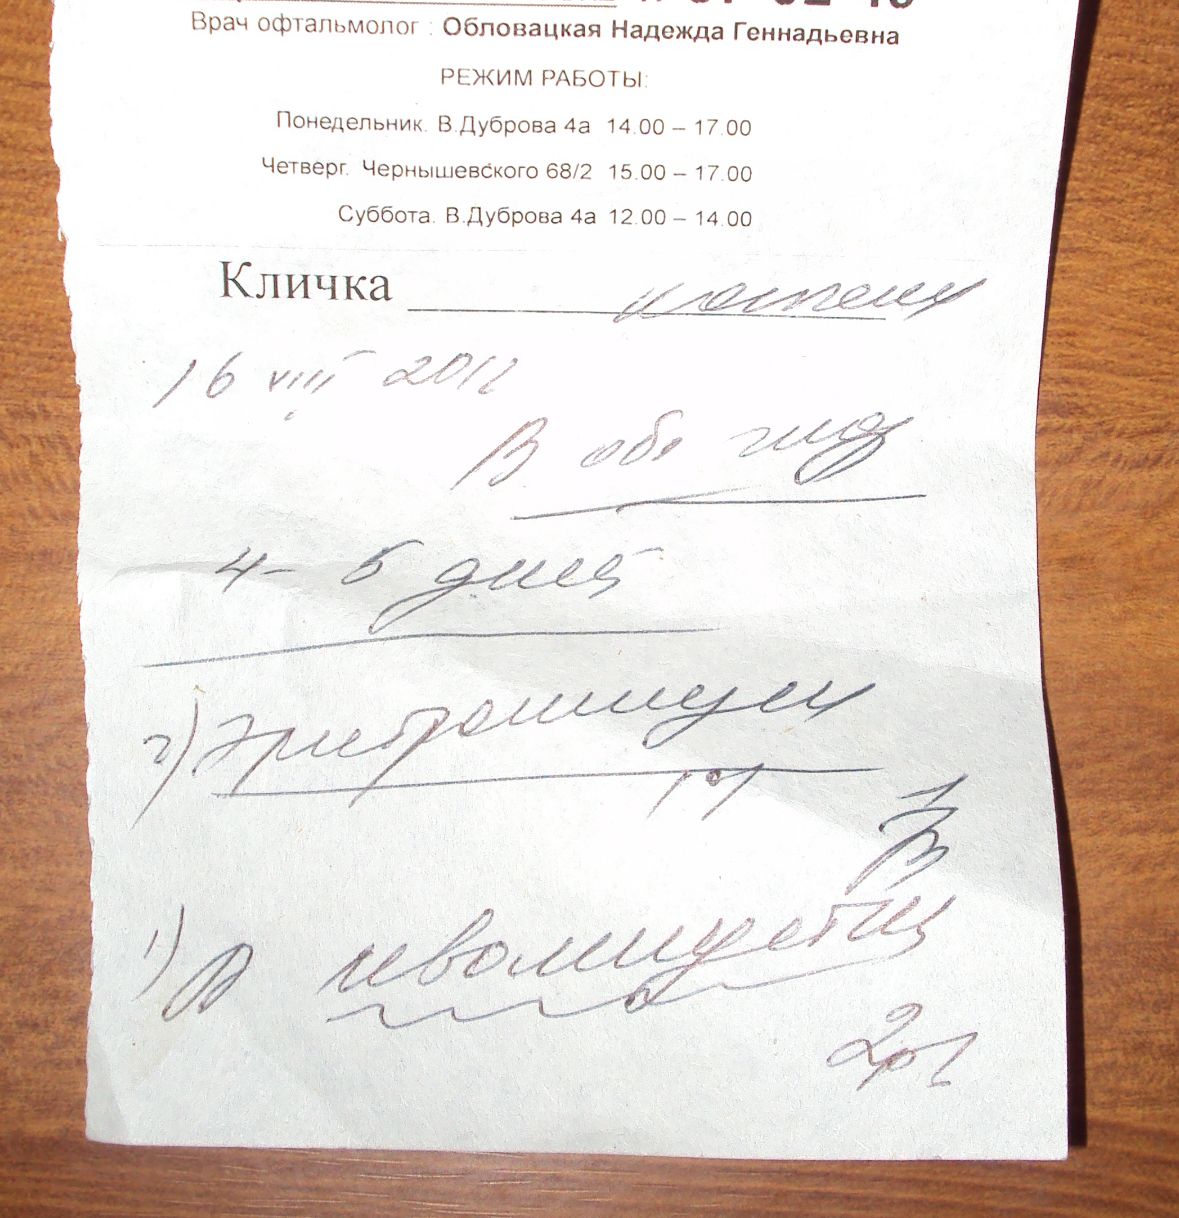 Врач офтальмолог : Обловацкая Надежда Геннадьевна
РЕЖИМ РАБОТЫ:
Понедельник. В.Дуброва 4а 14.00 – 17.00
Четверг. Чернышевского 68/2 15.00 – 17.00
Суббота. В.Дуброва 4а 12.00 – 14.00
Кличка котенок
16 VIII 2012
В оба глаза
4 - 5 дней
2) Эритромицин
1) левомицетин
2р